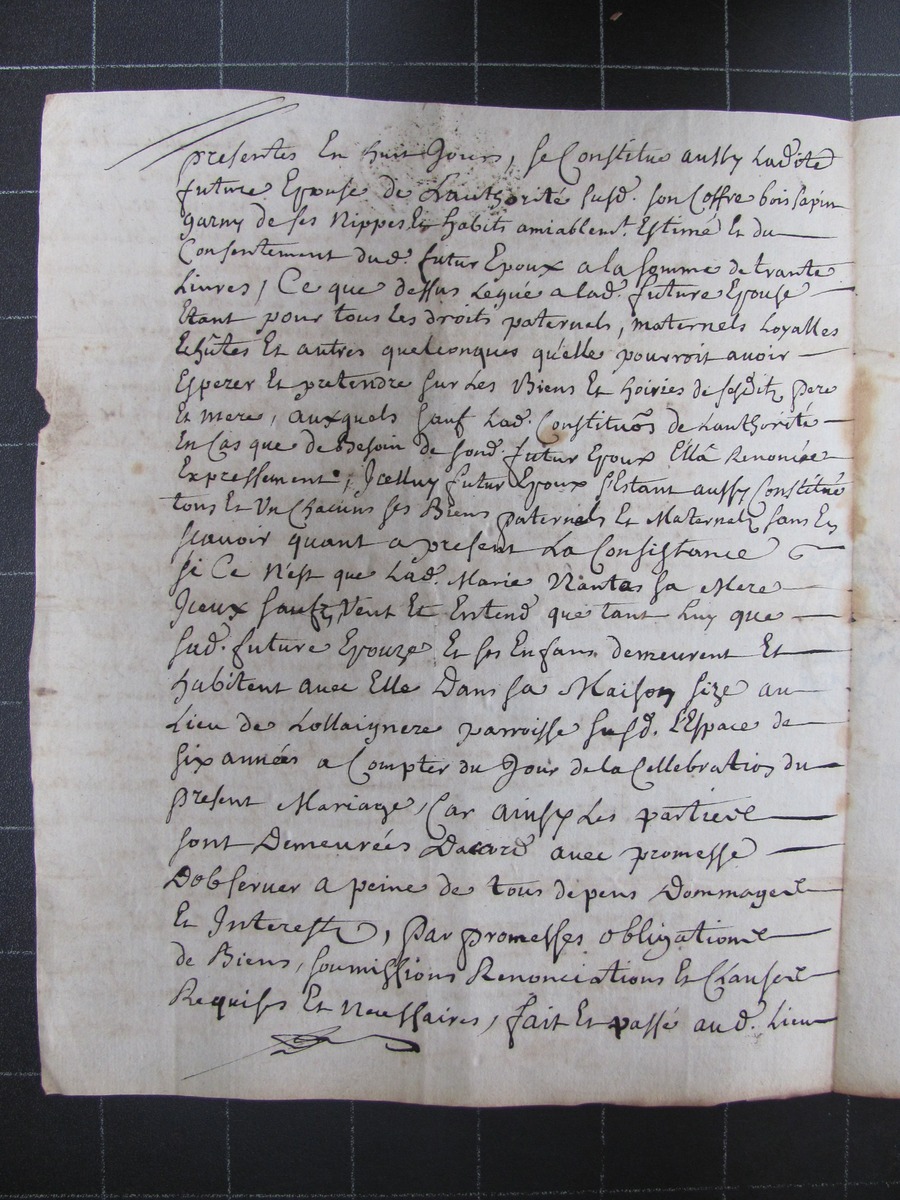 presentes En huit Jours, se Constitue aussy Ladite
future Epouse de Lauthorité susd. son Coffre bois sapin
garny de ses Nippes Et habits amiablemt. Estimé Et du
Consentement dud. futur Epoux a la somme de trante
Livres, Ce que dessus Legué a lad. future Epouse
Etant pour tous Les droits paternels, maternels Loyalles
Echûtes Et autres quelconques qu'elle pourroit avoir
Esperer Et pretendre sur Les Biens Et hoiries de sesdits pere
Et mere, auxquels sauf Lad. Constituõn de Lauthorité
En Cas que de Besoin de sond. futur Epoux Ellâ Renoncée
Expressement, Jcelluy futur Epoux s'Estant aussy Constitué
tous Et Un Chacuns ses Biens paternels Et Maternels sans En
scavoir quant a present La Consistance
si Ce N'est que Lad. Marie Nantas sa Mere
Jceux Veut Et Entend que tant Luy que
sad. future Epouze Et ses Enfans demeurent Et
habitent avec Elle Dans sa Maison size au
Lieu de Lollaignere parroisse susd. L'Espace de
six années a Compter du Jour de la Cellebration du
present Mariage, Car ainsy Les parties
sont Demeurées Dacord avec promesse
Dobserver a peine de tous depens Dommages
Et Interests, par promesses obligations
de Biens, soumissions Renonciations Et Clauses
Requises Et Necessaires, fait Et passé aud. Lieu